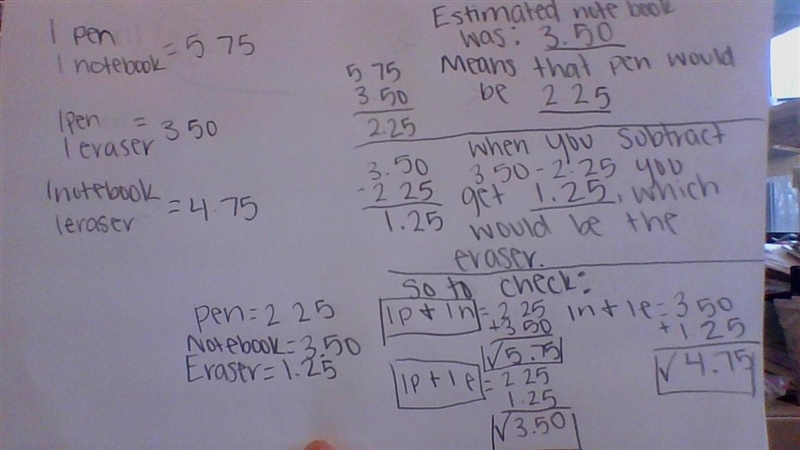 1 pen
1 notebook = 5 75
1pen
1 eraser = 3 50
1notebook
1eraser = 4.75
Estimated note book
was: 3.50
Means that pen would
be 2 25
5 75
3.50
2.25
when you subtract
3 50 - 2.25 you
get 1.25, which
would be the
eraser.
3.50
- 2 25
1.25
So to check:
1p + 1n = 2 25
+3 50
√5.75
1p + 1e = 2 25
1.25
√3.50
1n + 1e = 3 50
+ 1.25
√4.75
pen = 2 25
Notebook = 3.50
Eraser = 1.25